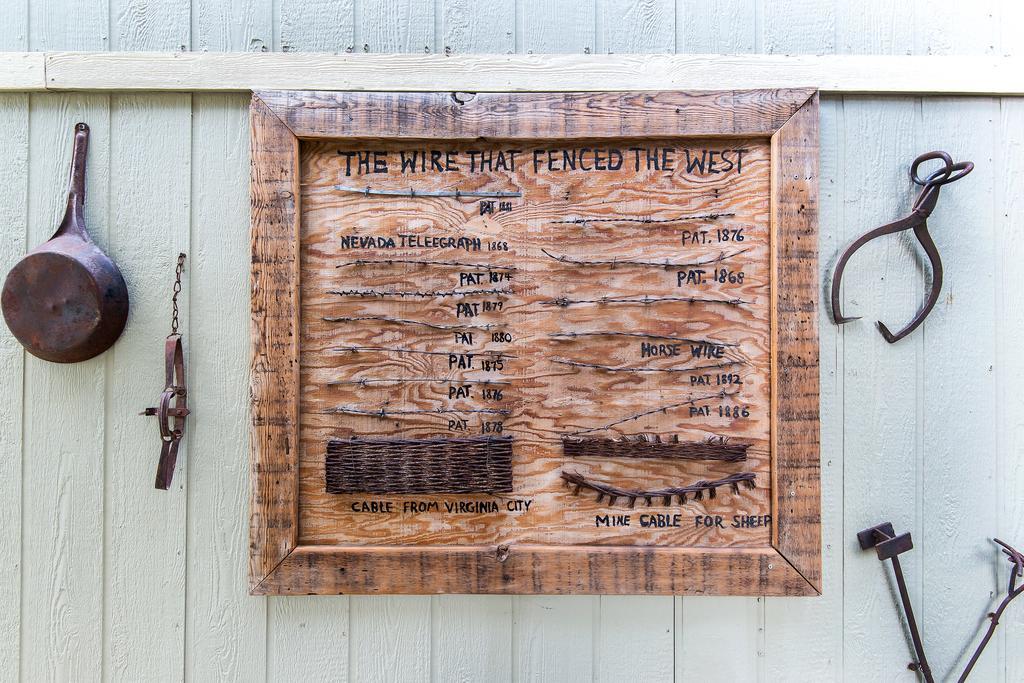 THE WIRE THAT FENCED THE WEST
PAT 1881
NEVADA TELEEGRAPH 1868
PAT. 1874
PAT 1879
PAT 1880
PAT. 1875
PAT. 1876
PAT. 1878
CABLE FROM VIRGINIA CITY
PAT. 1876
PAT. 1868
HORSE WIRE
PAT 1892
PAT 1886
MINE CABLE FOR SHEEP